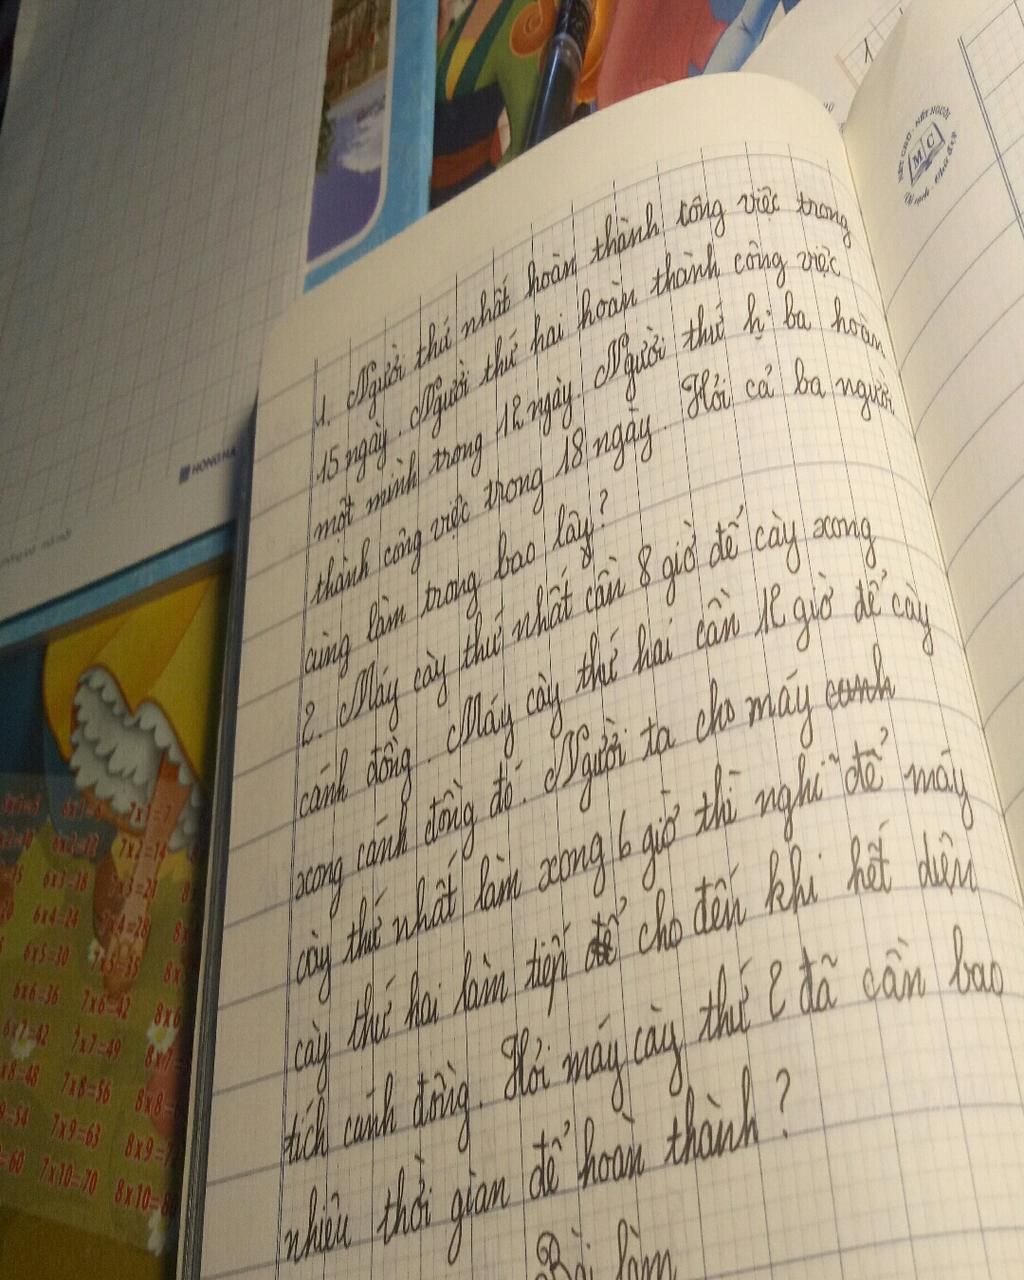 1. Người thứ nhất hoàn thành công việc trong
15 ngày. Người thứ hai hoàn thành công việc
một mình trong 12 ngày. Người thứ h ba hoàn
thành công việc trong 18 ngày. Hỏi cả ba người
cùng làm trong bao lâu?
2. Máy cày thứ nhất cần 8 giờ để cày xong
cánh đồng. Máy cày thứ hai cần 12 giờ để cày
xong cánh đồng đó. Người ta cho máy canh
cày thứ nhất làm xong 6 giờ thì nghỉ để máy
cày thứ hai làm tiếp để cho đến khi hết diện
tích cánh đồng. Hỏi máy cày thứ 2 đã cần bao
nhiêu thời gian để hoàn thành?
Bài làm
MC
HONG HA
6x3=18 7x3=21
6x4=24 7x4=28
6x5=30 7x5=35
6x6=36 7x6=42 8x6
6x7=42 7x7=49 8x7=
6x8=48 7x8=56 8x8=
=54 7x9=63 8x9=7
=60 7x10=70 8x10=8